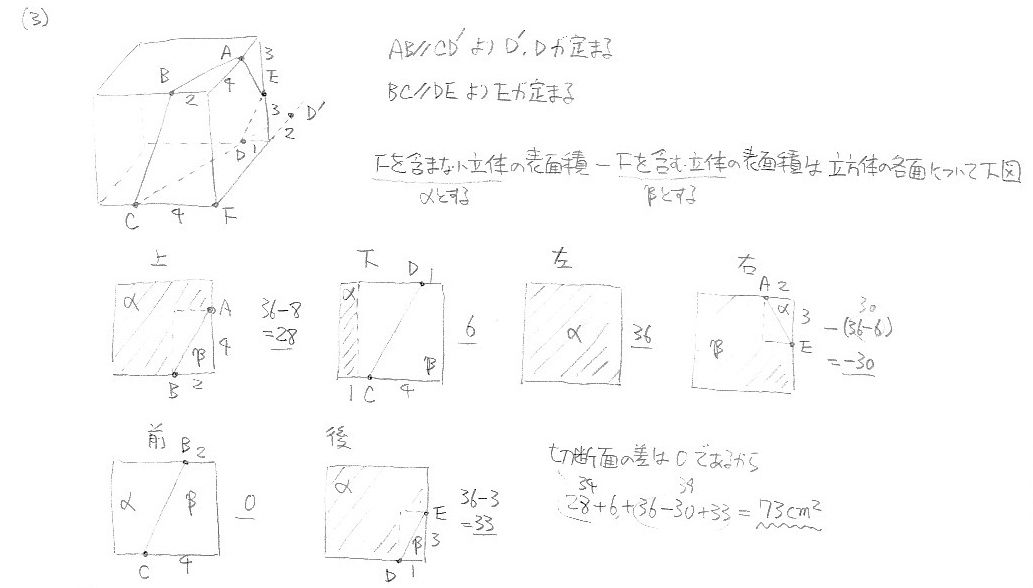 (3)
AB//CD'より D', Dが定まる
BC//DEよりEが定まる
A 3
B 4 E
2 3 D'
D 1 2
C 4 F
Fを含まない立体の表面積－Fを含む立体の表面積は立方体の各面について下図
αとする βとする
上 下 左 右
α A 4 β B 2
36-8
=28
α D 1 β 1 C 4
6
α
36
A 2 α 3 E β
30
-(36-6)
=-30
前 後
B 2 α β C 4
0
α E 3 β D 1
36-3
=33
切断面の差は0であるから
34 39
28+6+36-30+33=73cm²